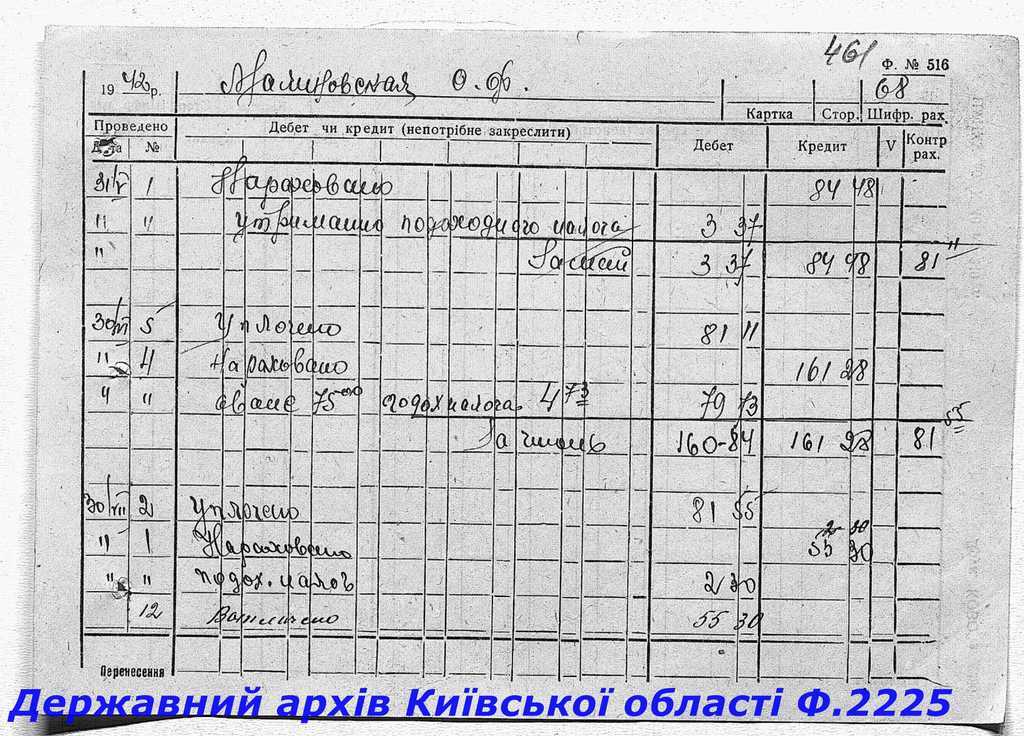 461
Ф. № 516
1942 р. Малиновская О. Ф. 68
Картка Стор. Шифр. рах.
Проведено Дебет чи кредит (непотрібне закреслити) Дебет Кредит V Контр рах.
Дата №
31/V 1 Нараховано 84 48
" " утримано подоходного налога 3 37
" За май 3 37 84 48 81 11
30/VI 5 Уплочено 81 11
" 4 Нараховано 161 28
" " аванс 75 00 подох налога 4 73 79 73
За июнь 160-84 161 28 81 55
30/VII 2 Уплочено 81 55
2 30
" 1 Нараховано 55 30
" " подох. налог 2 30
12 Виплачено 55 30
Перенесення
Державний архів Київської області Ф.2225